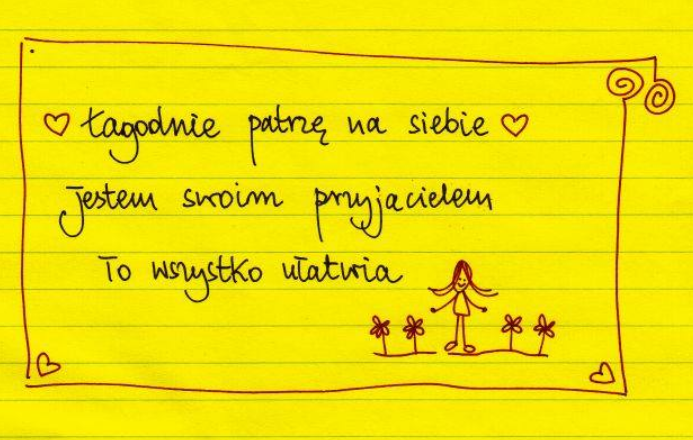 ♡ Łagodnie patrzę na siebie ♡
Jestem swoim przyjacielem
To wszystko ułatwia